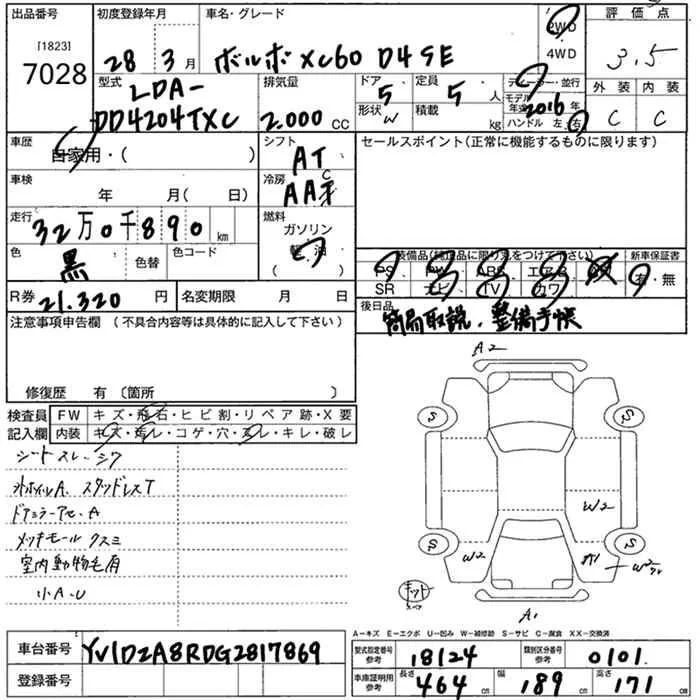 出品番号
[1823]
7028
初度登録年月
28 3月
車名・グレード
ボルボ XC60 D4 SE
2WD
4WD
評価点
3.5
外装 内装
C C
型式
LDA-
DD4204TXC
排気量
2.000 CC
ドア
5
形状
W
定員
5 人
積載
kg
ディーラー・並行
モデル年式 2016 年
ハンドル 左・右
車歴
自家用・( )
シフト
AT
セールスポイント(正常に機能するものに限ります)
車検
年 月( 日)
冷房
AAC
走行
32万0千890 km
燃料
ガソリン
軽油
( )
色
黒
色替
色コード
装備品(純正品に限り丸をつけて下さい)
新車保証書
PS PW ABS エアB
SR ナビ TV カワ
有・無
R券 21.320 円
名変期限 月 日
後日品
簡易取説、整備手帳
注意事項申告欄 (不具合内容等は具体的に記入して下さい)
修復歴 有 〔箇所 〕
検査員
記入欄
FW キズ・飛石・ヒビ割・リペア跡・X要
内装 キズ・汚レ・コゲ・穴・スレ・キレ・破レ
シートスレ、シワ
外ホイルA、スタッドレスT
ドアミラーアセ、A
メッキモールクスミ
室内動物毛有
小A、U
A2
S
S
W2
S
S
W2
A1
キット
A1
A−キズ E−エクボ U−凹み W−補修跡 S−サビ C−腐食 XX−交換済
車台番号 YV1DZA8RDG2817869
登録番号
型式指定番号
参考
18124
類別区分番号
参考
0101
車庫証明用
参考
長さ 464 cm
幅 189 cm
高さ 171 cm